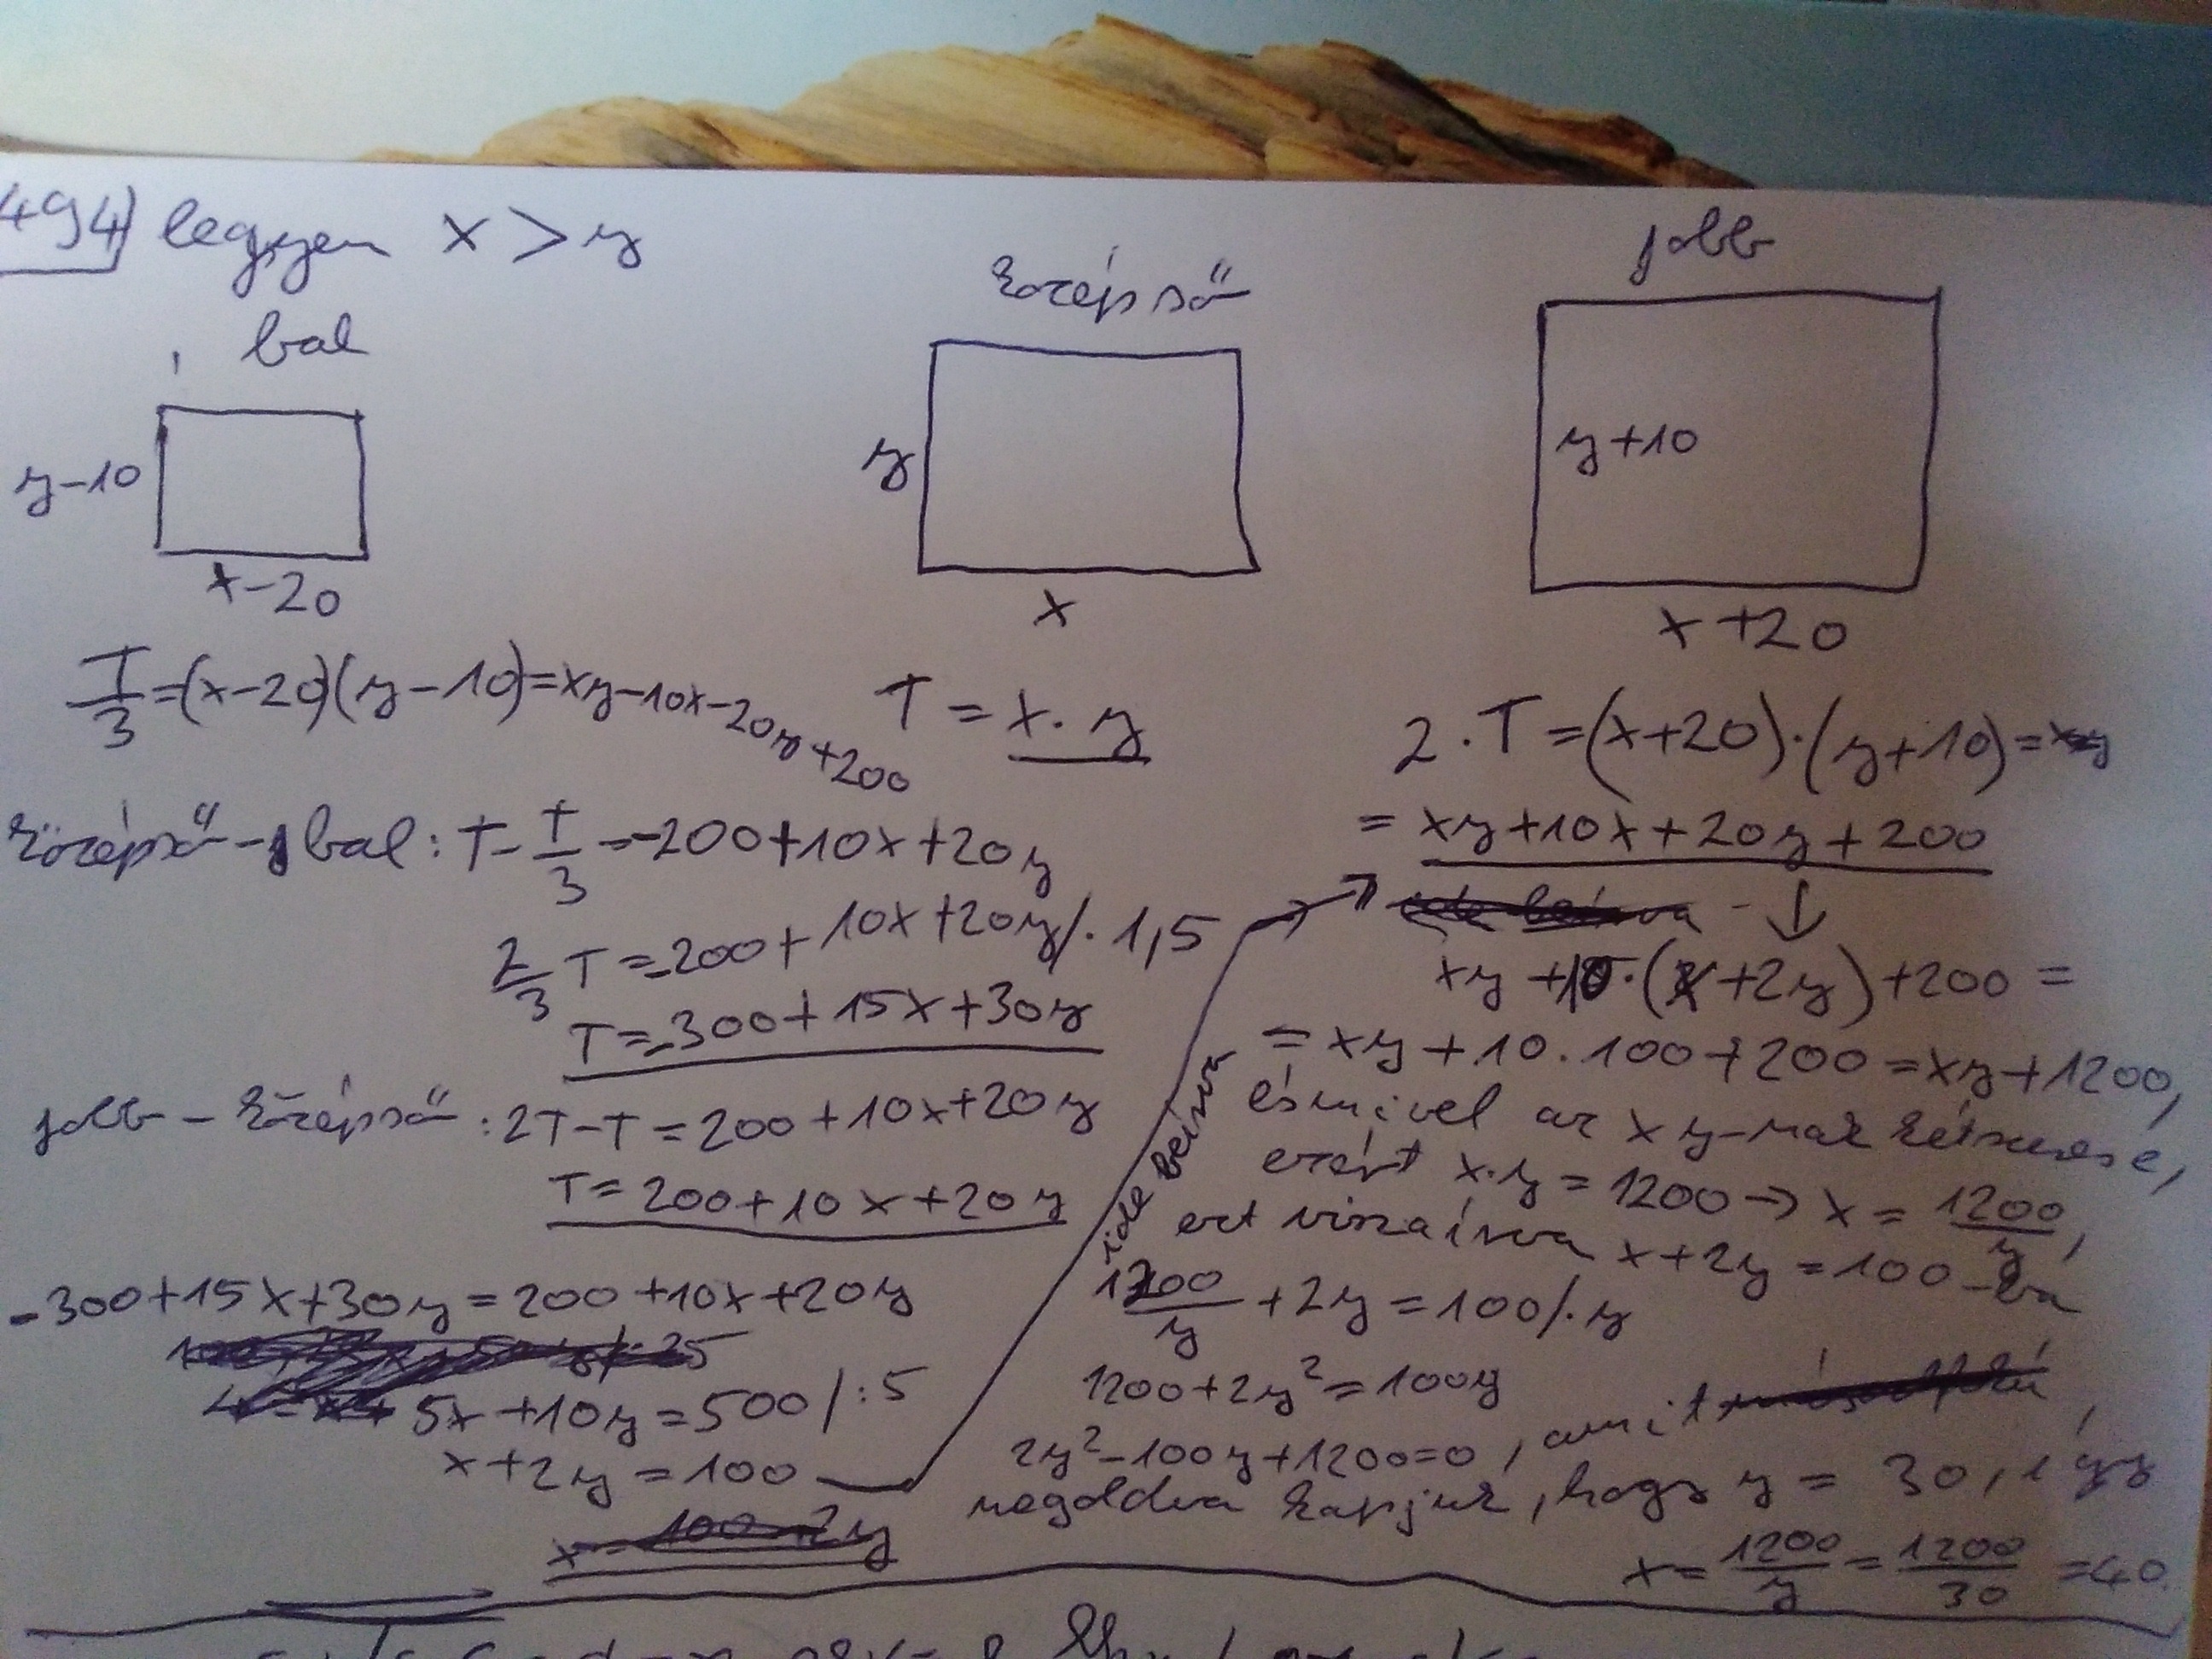 494) legyen x > y
bal
y-10
x-20
középső
y
x
jobb
y+10
x+20
T/3=(x-20)(y-10)=xy-10x-20y+200
T = x·y
2·T=(x+20)·(y+10)=
= xy+10x+20y+200
középső-bal: T-T/3=-200+10x+20y
2/3 T=-200+10x+20y/·1,5
T=-300+15x+30y
jobb-középső: 2T-T=200+10x+20y
T=200+10x+20y
-300+15x+30y=200+10x+20y
5x+10y=500/:5
x+2y=100
ide beírva
xy+10·(x+2y)+200=
=xy+10·100+200=xy+1200,
és mivel az xy-nak kétszerese,
ezért x·y=1200→x=1200/y,
ezt visszaírva x+2y=100-ba
1200/y+2y=100/·y
1200+2y²=100y
2y²-100y+1200=0, amit
megoldva kapjuk, hogy y=30, így
x=1200/y=1200/30=40